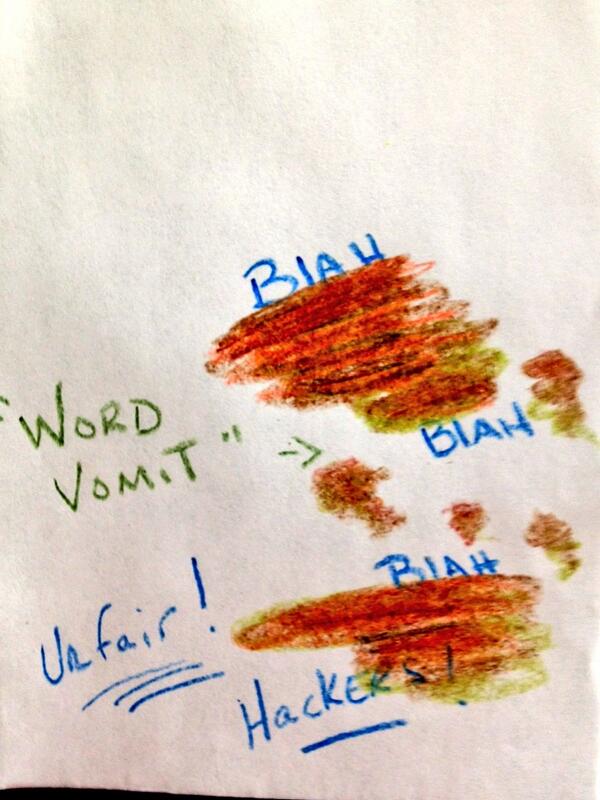 BLAH
BLAH
"WORD
VOMIT" ->
BLAH
Unfair!
Hackers!